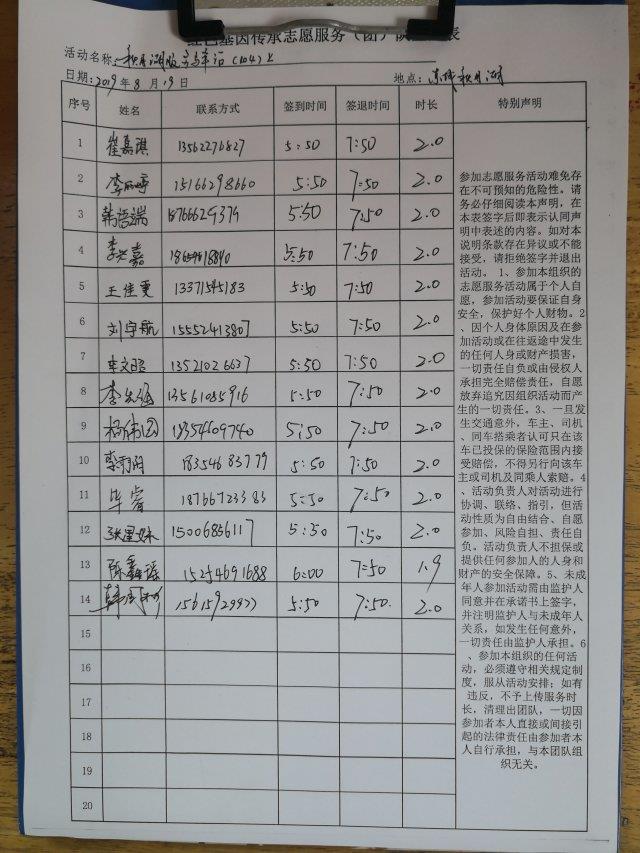 红色基因传承志愿服务(团)队 表
活动名称: 秋月湖服务 车站(104)
日期:2019年8月19日 地点: 秋月湖
序号 姓名 联系方式 签到时间 签退时间 时长 特别声明
1 崔嘉琪 13562276827 5:50 7:50 2.0
2 李 婷 15166298660 5:50 7:50 2.0
3 韩语端 18766629379 5:50 7:50 2.0
4 李 嘉 5:50 7:50 2.0
5 王佳雯 13371545183 5:50 7:50 2.0
6 刘宇航 15552413807 5:50 7:50 2.0
7 李文昭 13521026637 5:50 7:50 2.0
8 李 涵 13561085916 5:50 7:50 2.0
9 杨伟国 18354609740 5:50 7:50 2.0
10 李雨润 18354683779 5:50 7:50 2.0
11 毕睿 18766723383 5:50 7:50 2.0
12 张星妹 15006856117 5:50 7:50 2.0
13 陈鑫瑶 15254691688 6:00 7:50 1.9
14 韩 15615929977 5:50 7:50 2.0
15
16
17
18
19
20
参加志愿服务活动难免存
在不可预知的危险性。请
务必仔细阅读本声明,在
本表签字后即表示认同声
明中表述的内容。如对本
说明条款存在异议或不能
接受,请拒绝签字并退出
活动。 1、参加本组织的
志愿服务活动属于个人自
愿,参加活动要保证自身
安全,保护好个人财物。2
、因个人身体原因及在参
加活动或在往返途中发生
的任何人身或财产损害,
一切责任自负或由侵权人
承担完全赔偿责任,自愿
放弃追究因组织活动而产
生的一切责任。3、一旦发
生交通意外,车主、司机
、同车搭乘者认可只在该
车已投保的保险范围内接
受赔偿,不得另行向该车
主或司机及同乘人索赔。4
、活动负责人对活动进行
协调、联络、指引,但活
动性质为自由结合、自愿
参加、风险自担、责任自
负。活动负责人不担保或
提供任何参加人的人身和
财产的安全保障。5、未成
年人参加活动需由监护人
同意并在承诺书上签字,
并注明监护人与未成年人
关系,如发生任何意外,
一切责任由监护人承担。6
、参加本组织的任何活
动,必须遵守相关规定制
度,服从活动安排;如有
违反,不予上传服务时
长,清理出团队,一切因
参加者本人直接或间接引
起的法律责任由参加者本
人自行承担,与本团队组
织无关。